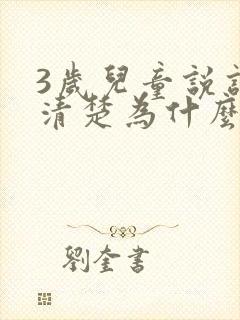 3歲兒童說
清楚為什麼
劉奎書